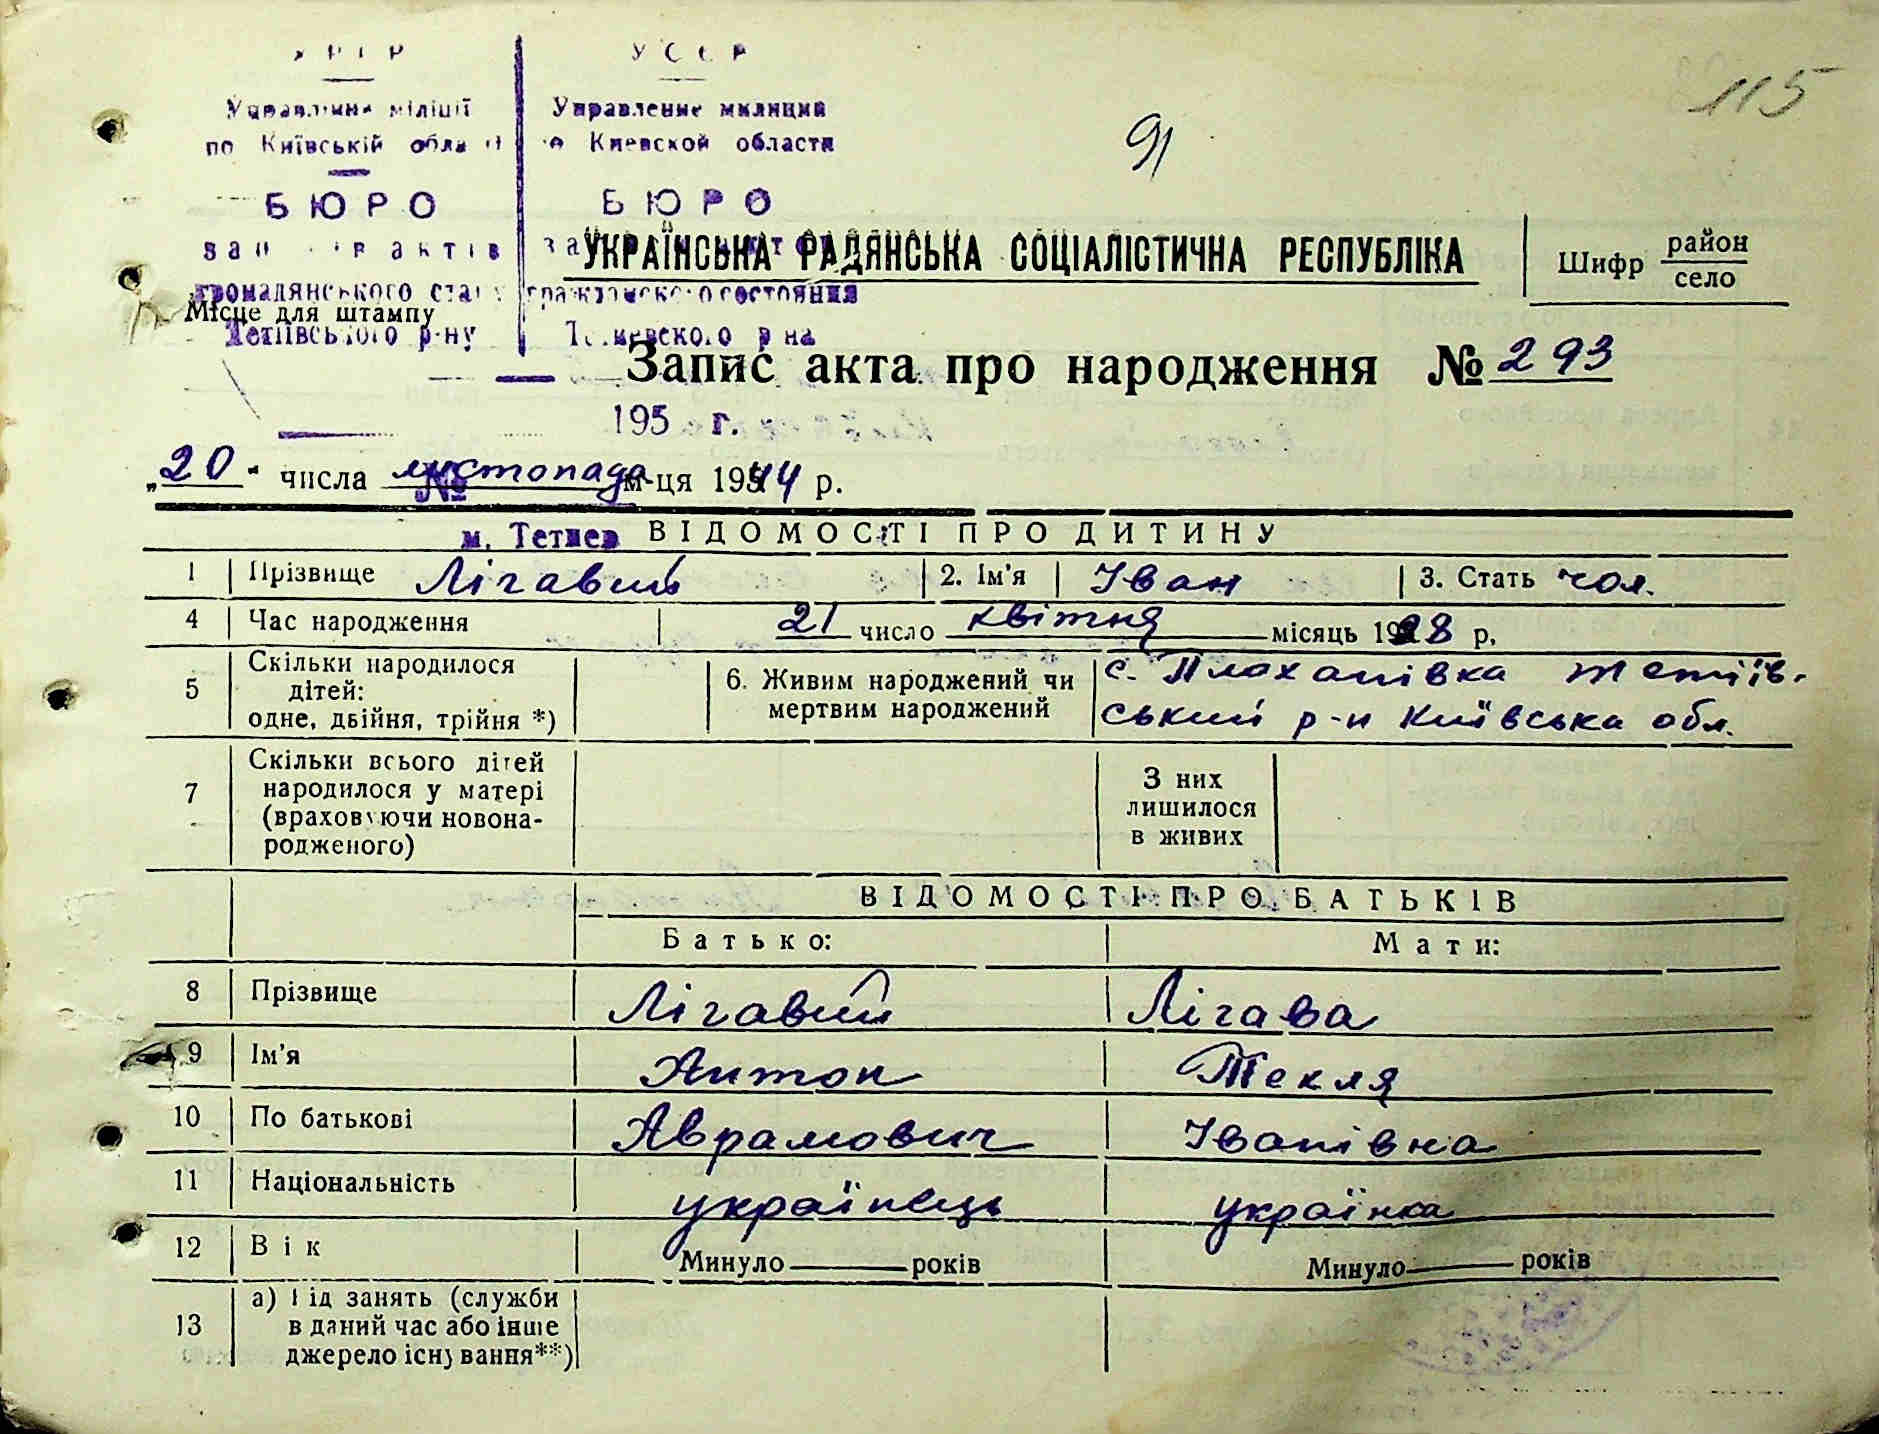 115
91
У С С Р
Управление милиции
по Київській
Киевской области
БЮРО
БЮРО
актів
громадянського
УКРАЇНСЬКА РАДЯНСЬКА СОЦІАЛІСТИЧНА РЕСПУБЛІКА
Шифр район
село
Місце для штампу
р-ну
Запис акта про народження № 293
195 г.
„20" числа листопада м-ця 1944 р.
№
м. Тетиев
ВІДОМОСТІ ПРО ДИТИНУ
1 Прізвище Лігавий 2. Ім'я Іван 3. Стать чол.
4 Час народження 21 число квітня місяць 1928 р.
5 Скільки народилося дітей: одне, двійня, трійня *) 6. Живим народжений чи мертвим народжений с. Плаханівка Тетіїв-
ський р-н Київська обл.
7 Скільки всього дітей
народилося у матері
(враховуючи новона-
родженого)
З них
лишилося
в живих
ВІДОМОСТІ ПРО БАТЬКІВ
Батько: Мати:
8 Прізвище Лігавий Лігава
9 Ім'я Антон Текля
10 По батькові Аврамович Іванівна
11 Національність українець українка
12 Вік Минуло років Минуло років
13 а) Рід занять (служби
в даний час або інше
джерело існування**)